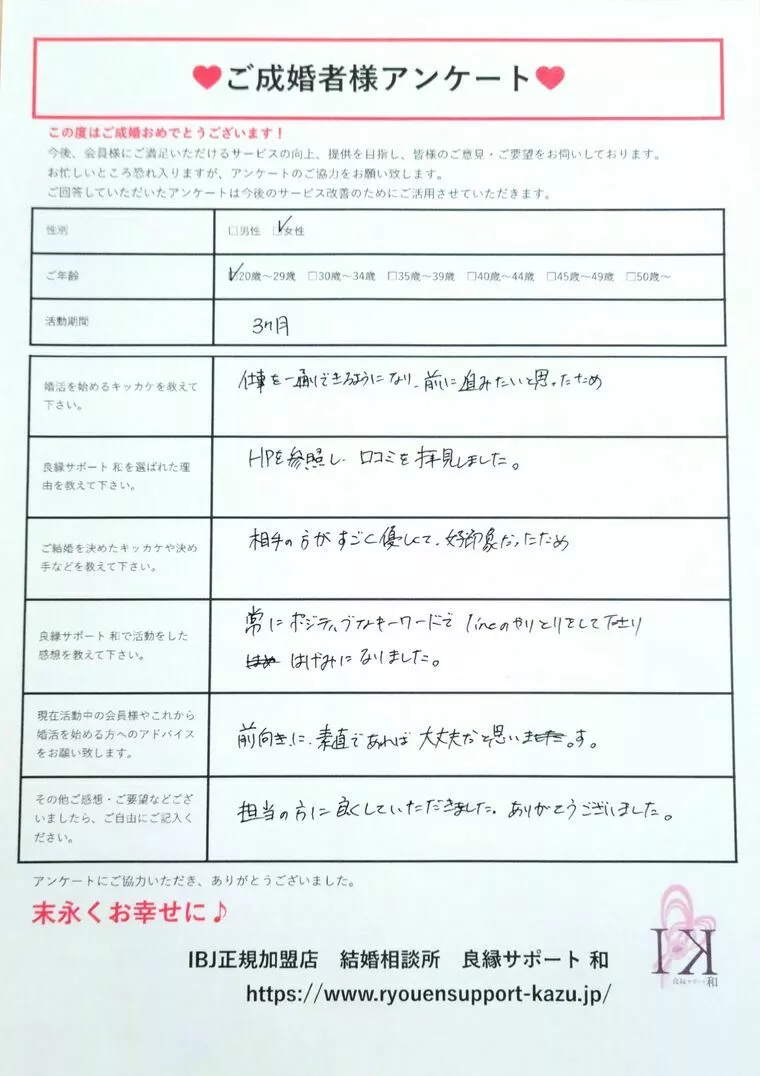 ♥ご成婚者様アンケート♥
この度はご成婚おめでとうございます！
今後、会員様にご満足いただけるサービスの向上、提供を目指し、皆様のご意見・ご要望をお伺いしております。
お忙しいところ恐れ入りますが、アンケートのご協力をお願い致します。
ご回答していただいたアンケートは今後のサービス改善のためにご活用させていただきます。
性別
□男性 ☑女性
ご年齢
☑20歳～29歳 □30歳～34歳 □35歳～39歳 □40歳～44歳 □45歳～49歳 □50歳～
活動期間
3ヶ月
婚活を始めるキッカケを教えて
下さい。
仕事を一通りできるようになり、前に進みたいと思ったため
良縁サポート 和を選ばれた理
由を教えて下さい。
HPを参照し、口コミを拝見しました。
ご結婚を決めたキッカケや決め
手などを教えて下さい。
相手の方がすごく優しくて、好印象だったため
良縁サポート 和で活動をした
感想を教えて下さい。
常にポジティブなキーワードで lineのやりとりをして下さり
はげみになりました。
現在活動中の会員様やこれから
婚活を始める方へのアドバイス
をお願い致します。
前向きに、素直であれば大丈夫だと思います。
その他ご感想・ご要望などござ
いましたら、ご自由にご記入く
ださい。
担当の方に良くしていただきました。ありがとうございました。
アンケートにご協力いただき、ありがとうございました。
末永くお幸せに♪
IBJ正規加盟店 結婚相談所 良縁サポート 和
https://www.ryouensupport-kazu.jp/
良縁サポート和